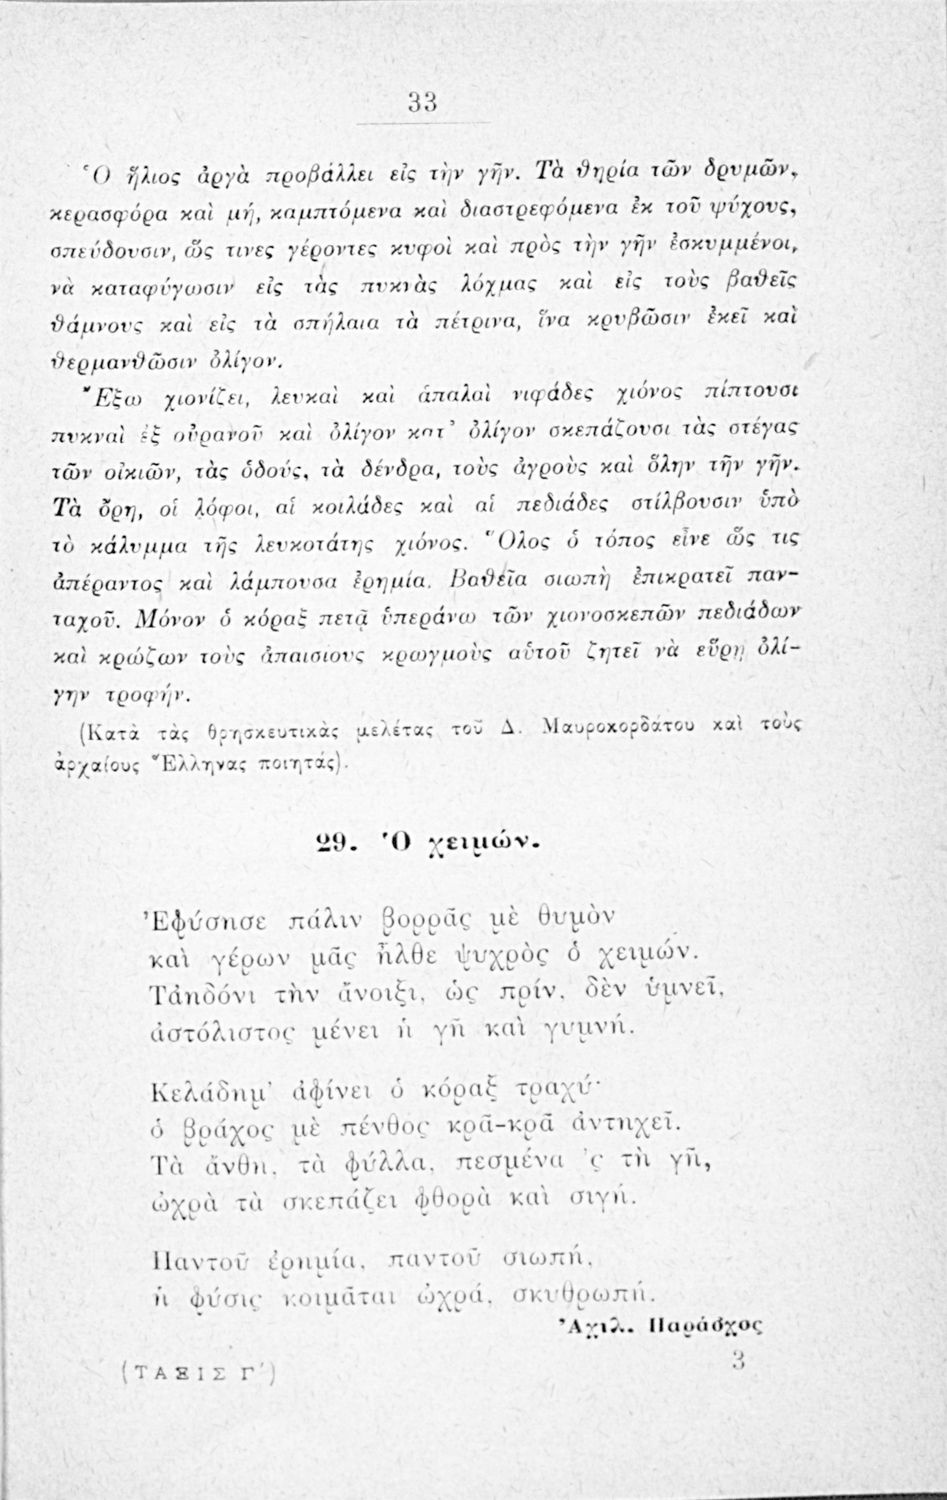 33
Ὁ ἥλιος ἀργὰ προβάλλει εἰς τὴν γῆν. Τὰ θηρία τῶν δρυμῶν,
κερασφόρα καὶ μή, καμπτόμενα καὶ διαστρεφόμενα ἐκ τοῦ ψύχους,
σπεύδουσιν, ὥς τινες γέροντες κυφοὶ καὶ πρὸς τὴν γῆν ἐσκυμμένοι,
νὰ καταφύγωσιν εἰς τὰς πυκνὰς λόχμας καὶ εἰς τοὺς βαθεῖς
θάμνους καὶ εἰς τὰ σπήλαια τὰ πέτρινα, ἵνα κρυβῶσιν ἐκεῖ καὶ
θερμανθῶσιν ὀλίγον.
Ἔξω χιονίζει, λευκαὶ καὶ ἁπαλαὶ νιφάδες χιόνος πίπτουσι
πυκναὶ ἐξ οὐρανοῦ καὶ ὀλίγον κατ’ ὀλίγον σκεπάζουσι τὰς στέγας
τῶν οἰκιῶν, τὰς ὁδούς, τὰ δένδρα, τοὺς ἀγροὺς καὶ ὅλην τῆν γῆν.
Τὰ ὄρη, οἱ λόφοι, αἱ κοιλάδες καὶ αἱ πεδιάδες στίλβουσιν ὑπὸ
τὸ κάλυμμα τῆς λευκοτάτης χιόνος. Ὅλος ὁ τόπος εἶνε ὥς τις
ἀπέραντος καὶ λάμπουσα ἐρημία. Βαθεῖα σιωπὴ ἐπικρατεῖ παν-
ταχοῦ. Μόνον ὁ κόραξ πετᾷ ὑπεράνω τῶν χιονοσκεπῶν πεδιάδων
καὶ κρώζων τοὺς ἀπαισιους κρωγμοὺς αὑτοῦ ζητεῖ νὰ εὕρῃ ὀλί-
γην τροφήν.
(Κατὰ τὰς θρησκευτικὰς μελέτας τοῦ Δ. Μαυροκορδάτου καὶ τοὺς
ἀρχαίους Ἕλληνας ποιητάς).
29. Ὁ χειμών.
Ἐφύσησε πάλιν βορρᾶς μὲ θυμὸν
καὶ γέρων μᾶς ἦλθε ψυχρὸς ὁ χειμών.
Τἀηδόνι τὴν ἄνοιξι, ὡς πρίν, δὲν ὑμνεῖ,
ἀστόλιστος μένει ἡ γῆ καὶ γυμνή.
Κελάδημ’ ἀφίνει ὁ κόραξ τραχύ·
ὁ βράχος μὲ πένθος κρᾶ-κρᾶ ἀντηχεῖ.
Τὰ ἄνθη, τὰ φύλλα, πεσμένα ’ς τὴ γῆ,
ὠχρὰ τὰ σκεπάζει φθορὰ καὶ σιγή.
Παντοῦ ἐρημία, παντοῦ σιωπή,
ἡ φύσις κοιμᾶται ὠχρά, σκυθρωπή.
Ἀχιλ. Παράσχος
(ΤΑΞΙΣ Γ΄) 3